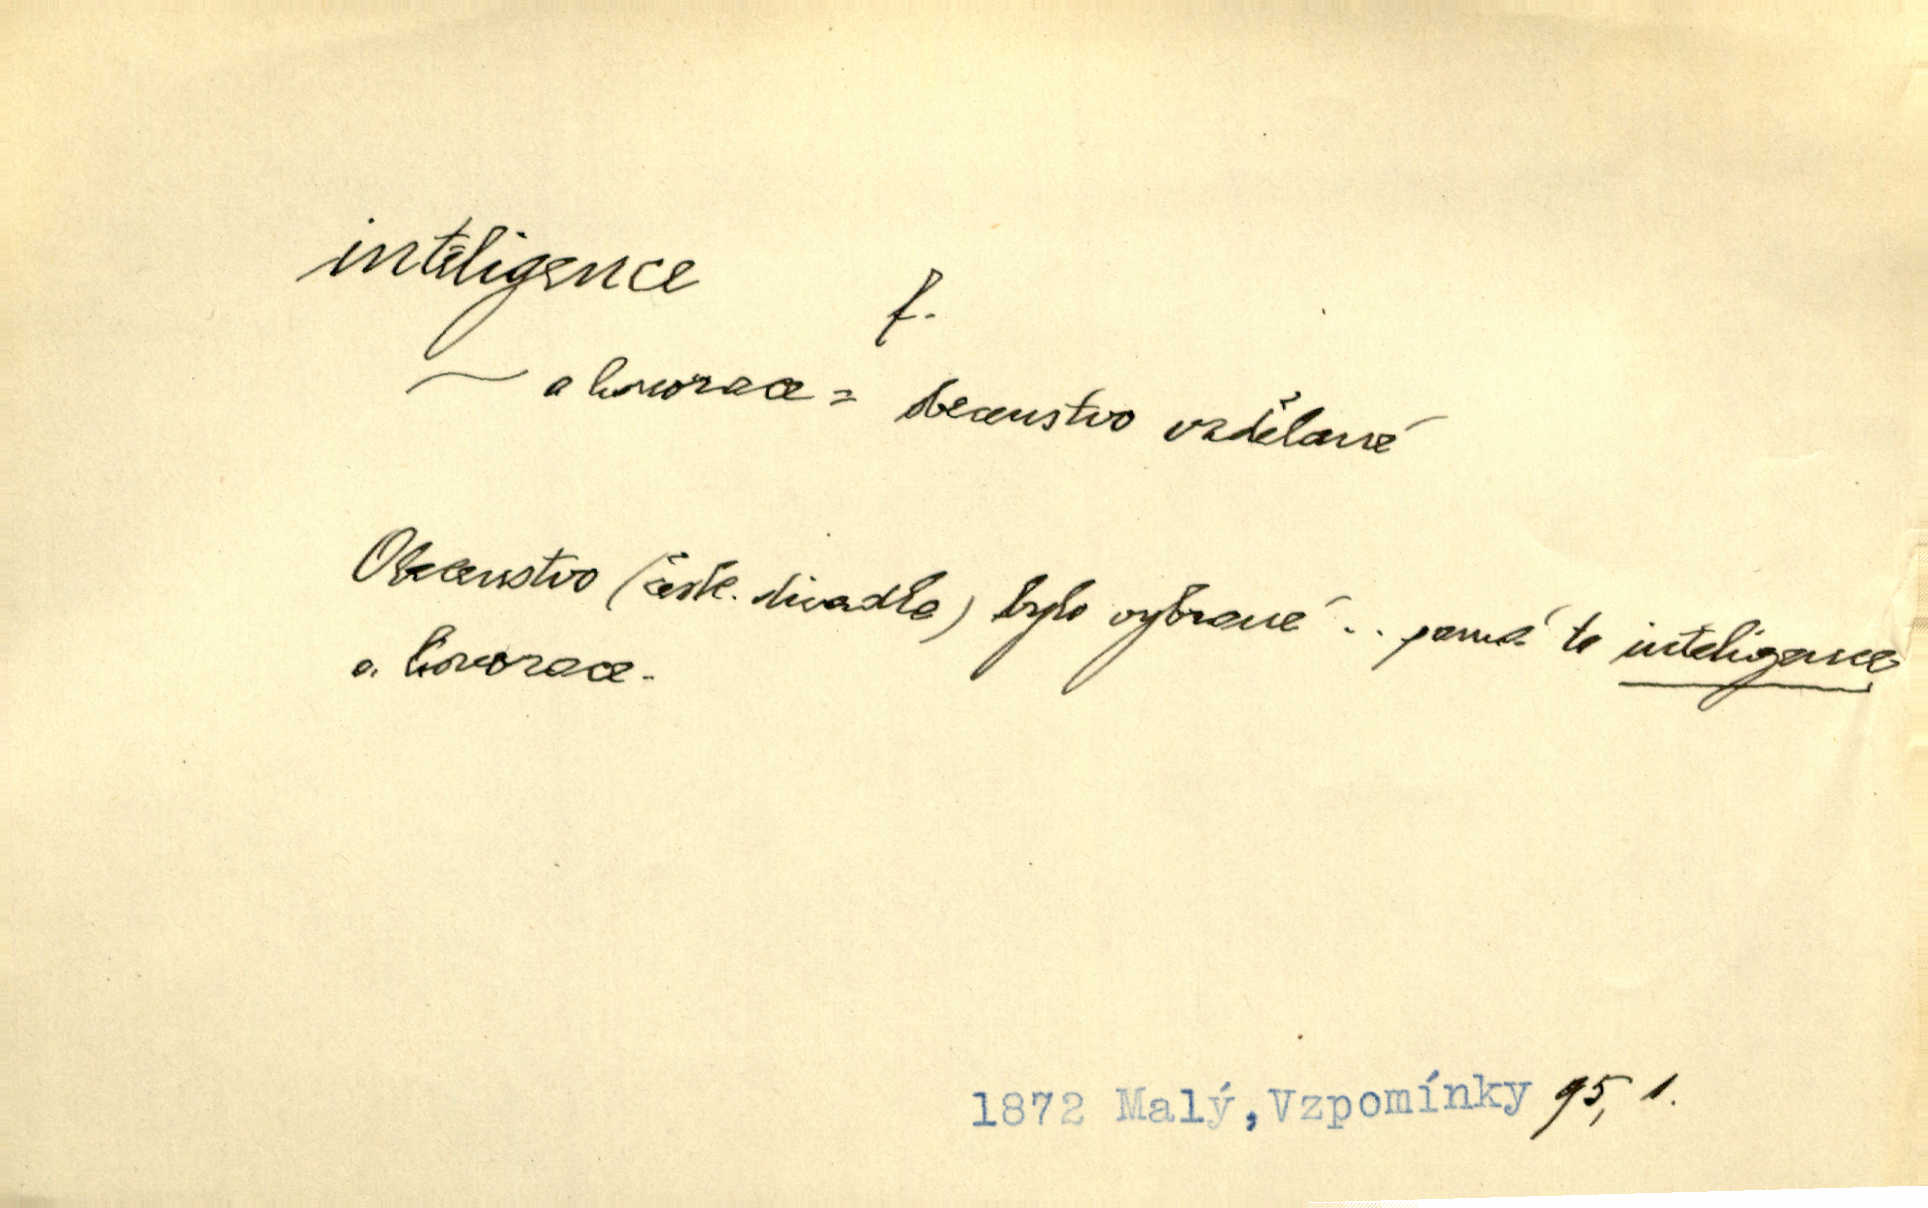 inteligence
f.
~ a honorace = obecenstvo vzdělané
Obecenstvo (česk. divadla) bylo vybrané .. samá to inteligence
a honorace.
1872 Malý, Vzpomínky 95, 1.